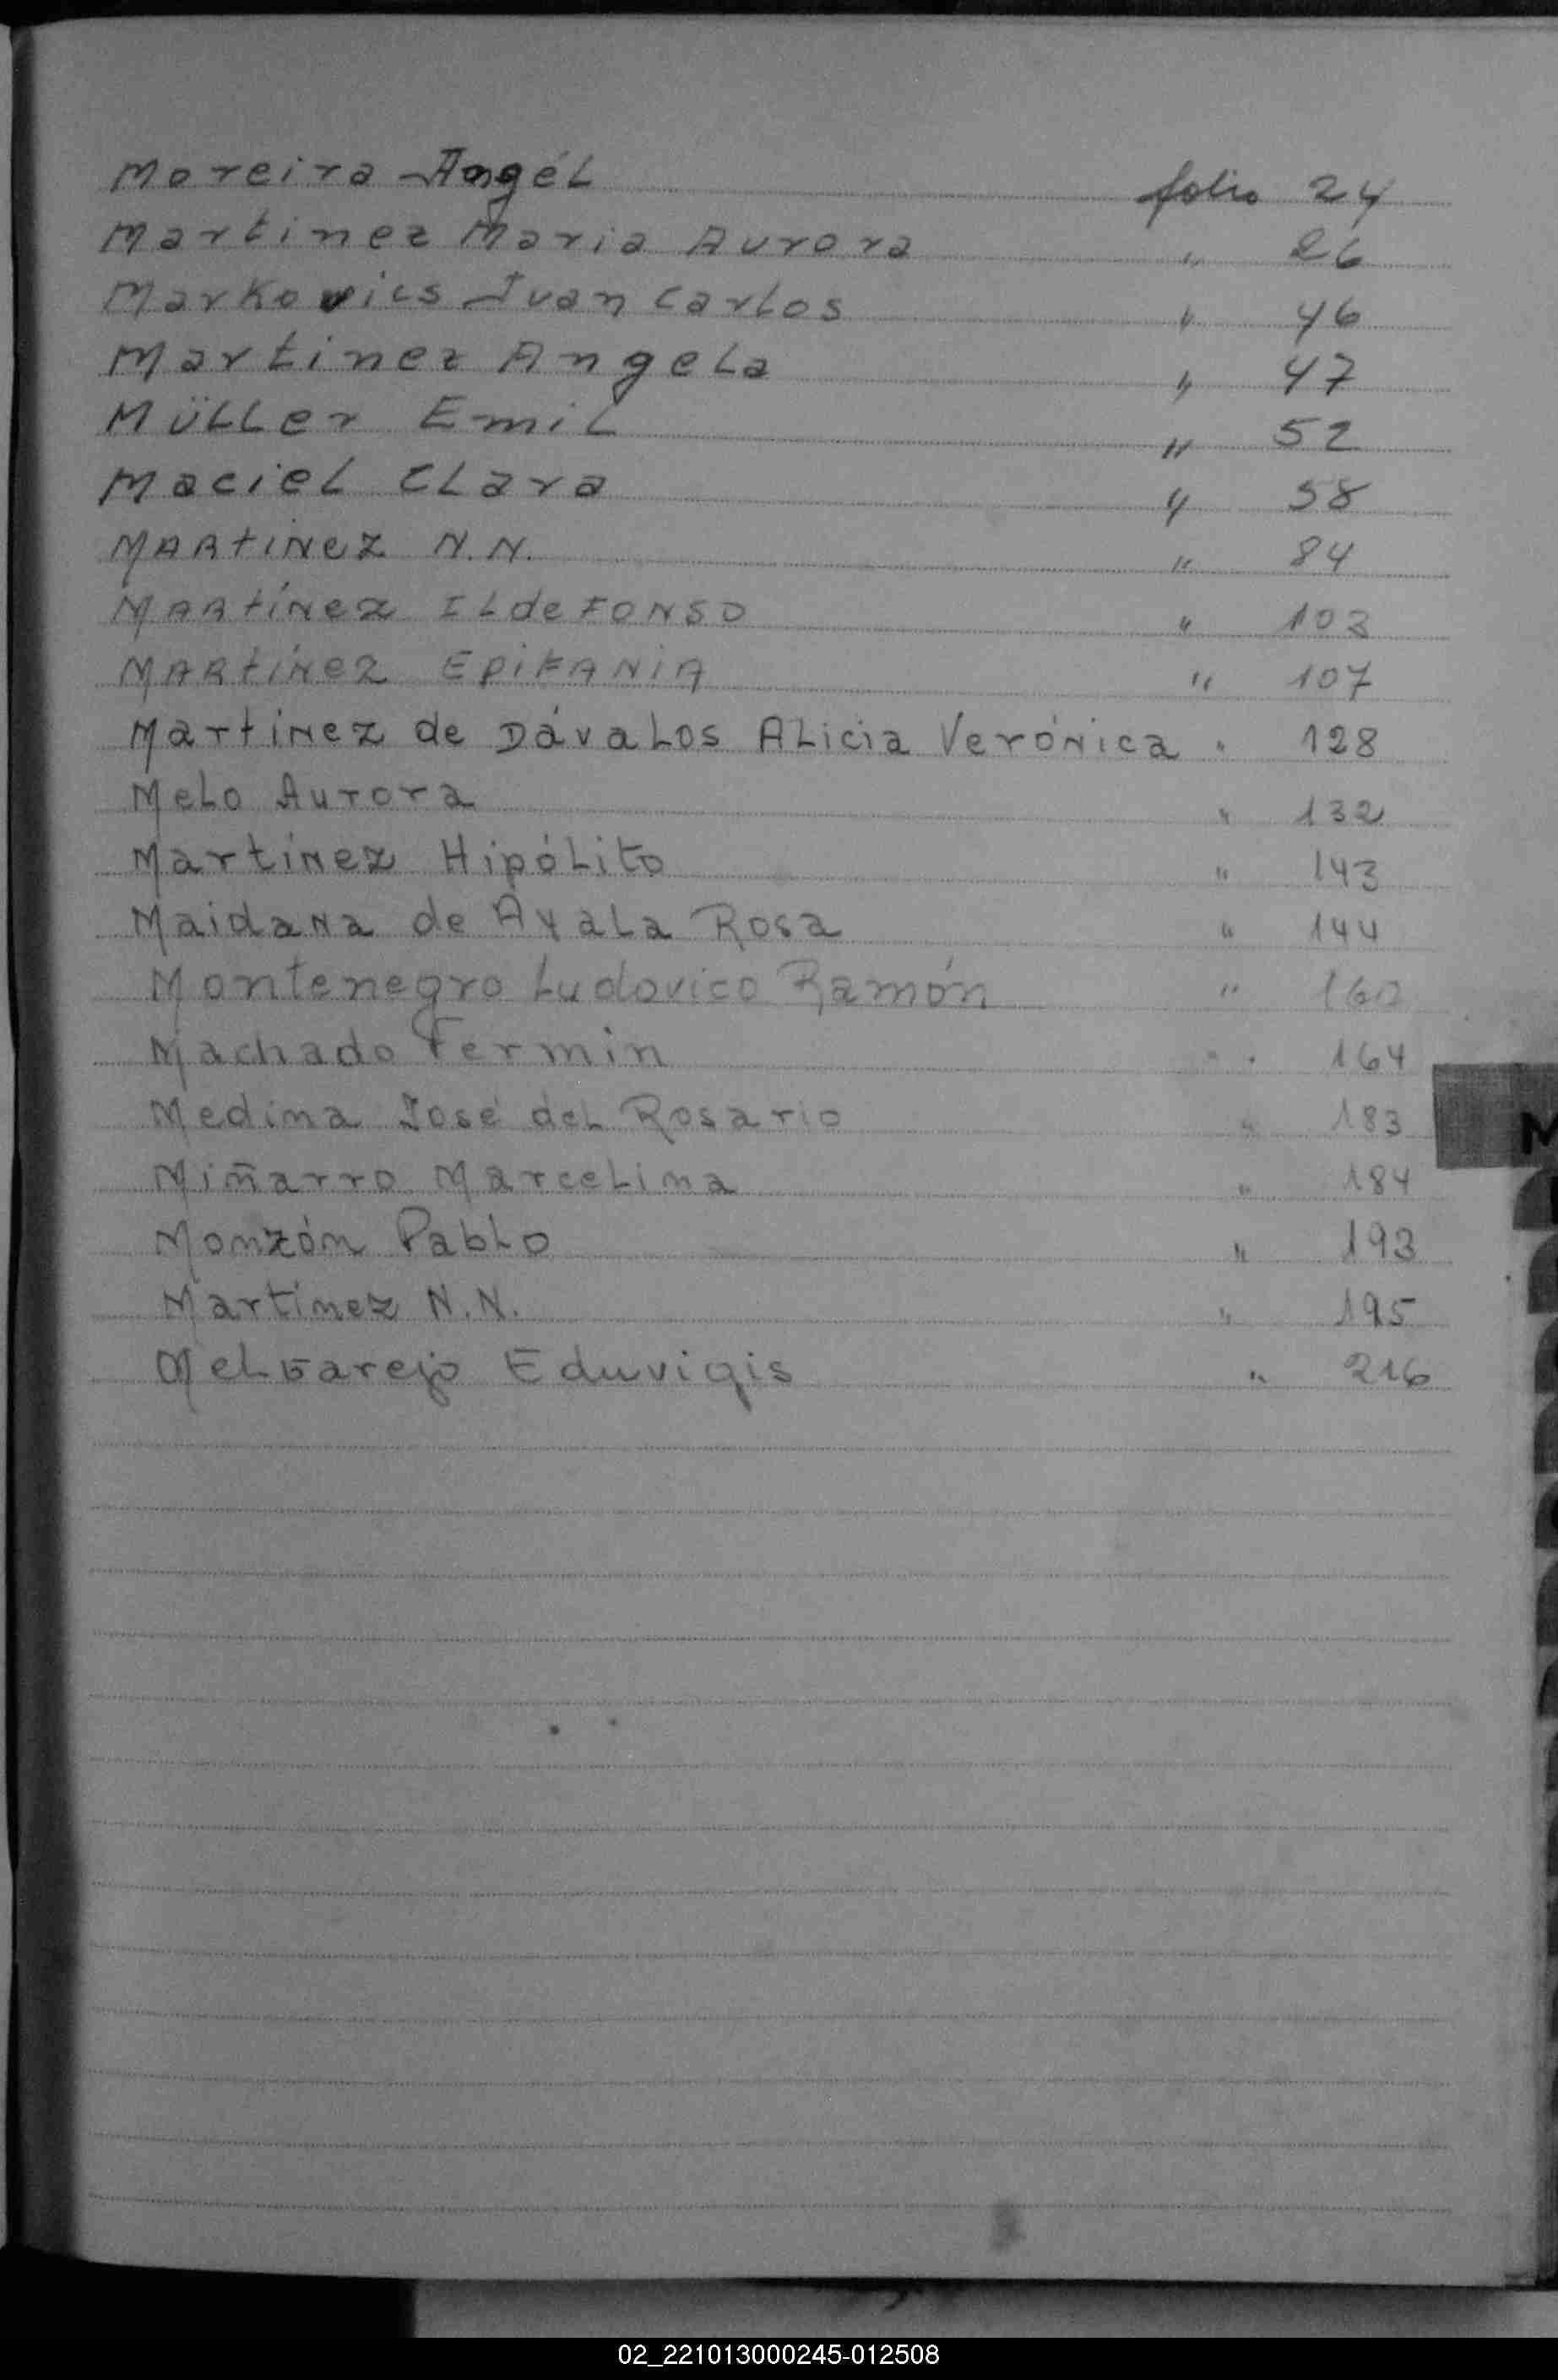 Moreira Angél folio 24
Martinez Maria Aurora " 26
Markovics Ivan Carlos " 46
Martinez Angela " 47
Müller Emil " 52
Maciel Clara " 58
MARtiNez N.N. " 84
MARtíNez ILdeFONSO " 103
MARtíNez EpiFANiA " 107
Martínez de Dávalos Alicia Verónica " 128
Melo Aurora " 132
Martínez Hipólito " 143
Maidana de Ayala Rosa " 144
Montenegro Ludovico Ramón " 160
Machado Fermin " 164
Medina José del Rosario " 183
Miñarro Marcelina " 184
Monzón Pablo " 193
Martínez N.N. " 195
Melgarejo Eduvigis " 216
M
02_221013000245-012508